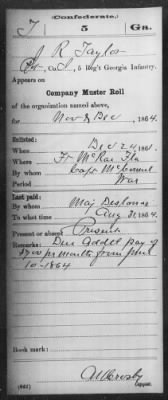 (Confederate.)
T 5 Ga.
J. R. Taylor
Pvt, Co. I, 5 Reg't Georgia Infantry.
Appears on
Company Muster Roll
of the organization named above,
for Nov & Dec, 1864.
Enlisted:
When Dec 24 1861.
Where Ft McRae Fla
By whom Capt
Period War
Last paid:
By whom Maj Deslonde
To what time Aug 31, 1864.
Present or absent Present
Remarks: Due Addtl pay of
pr month from
10-1864
Book mark:
(642)
Copyist.